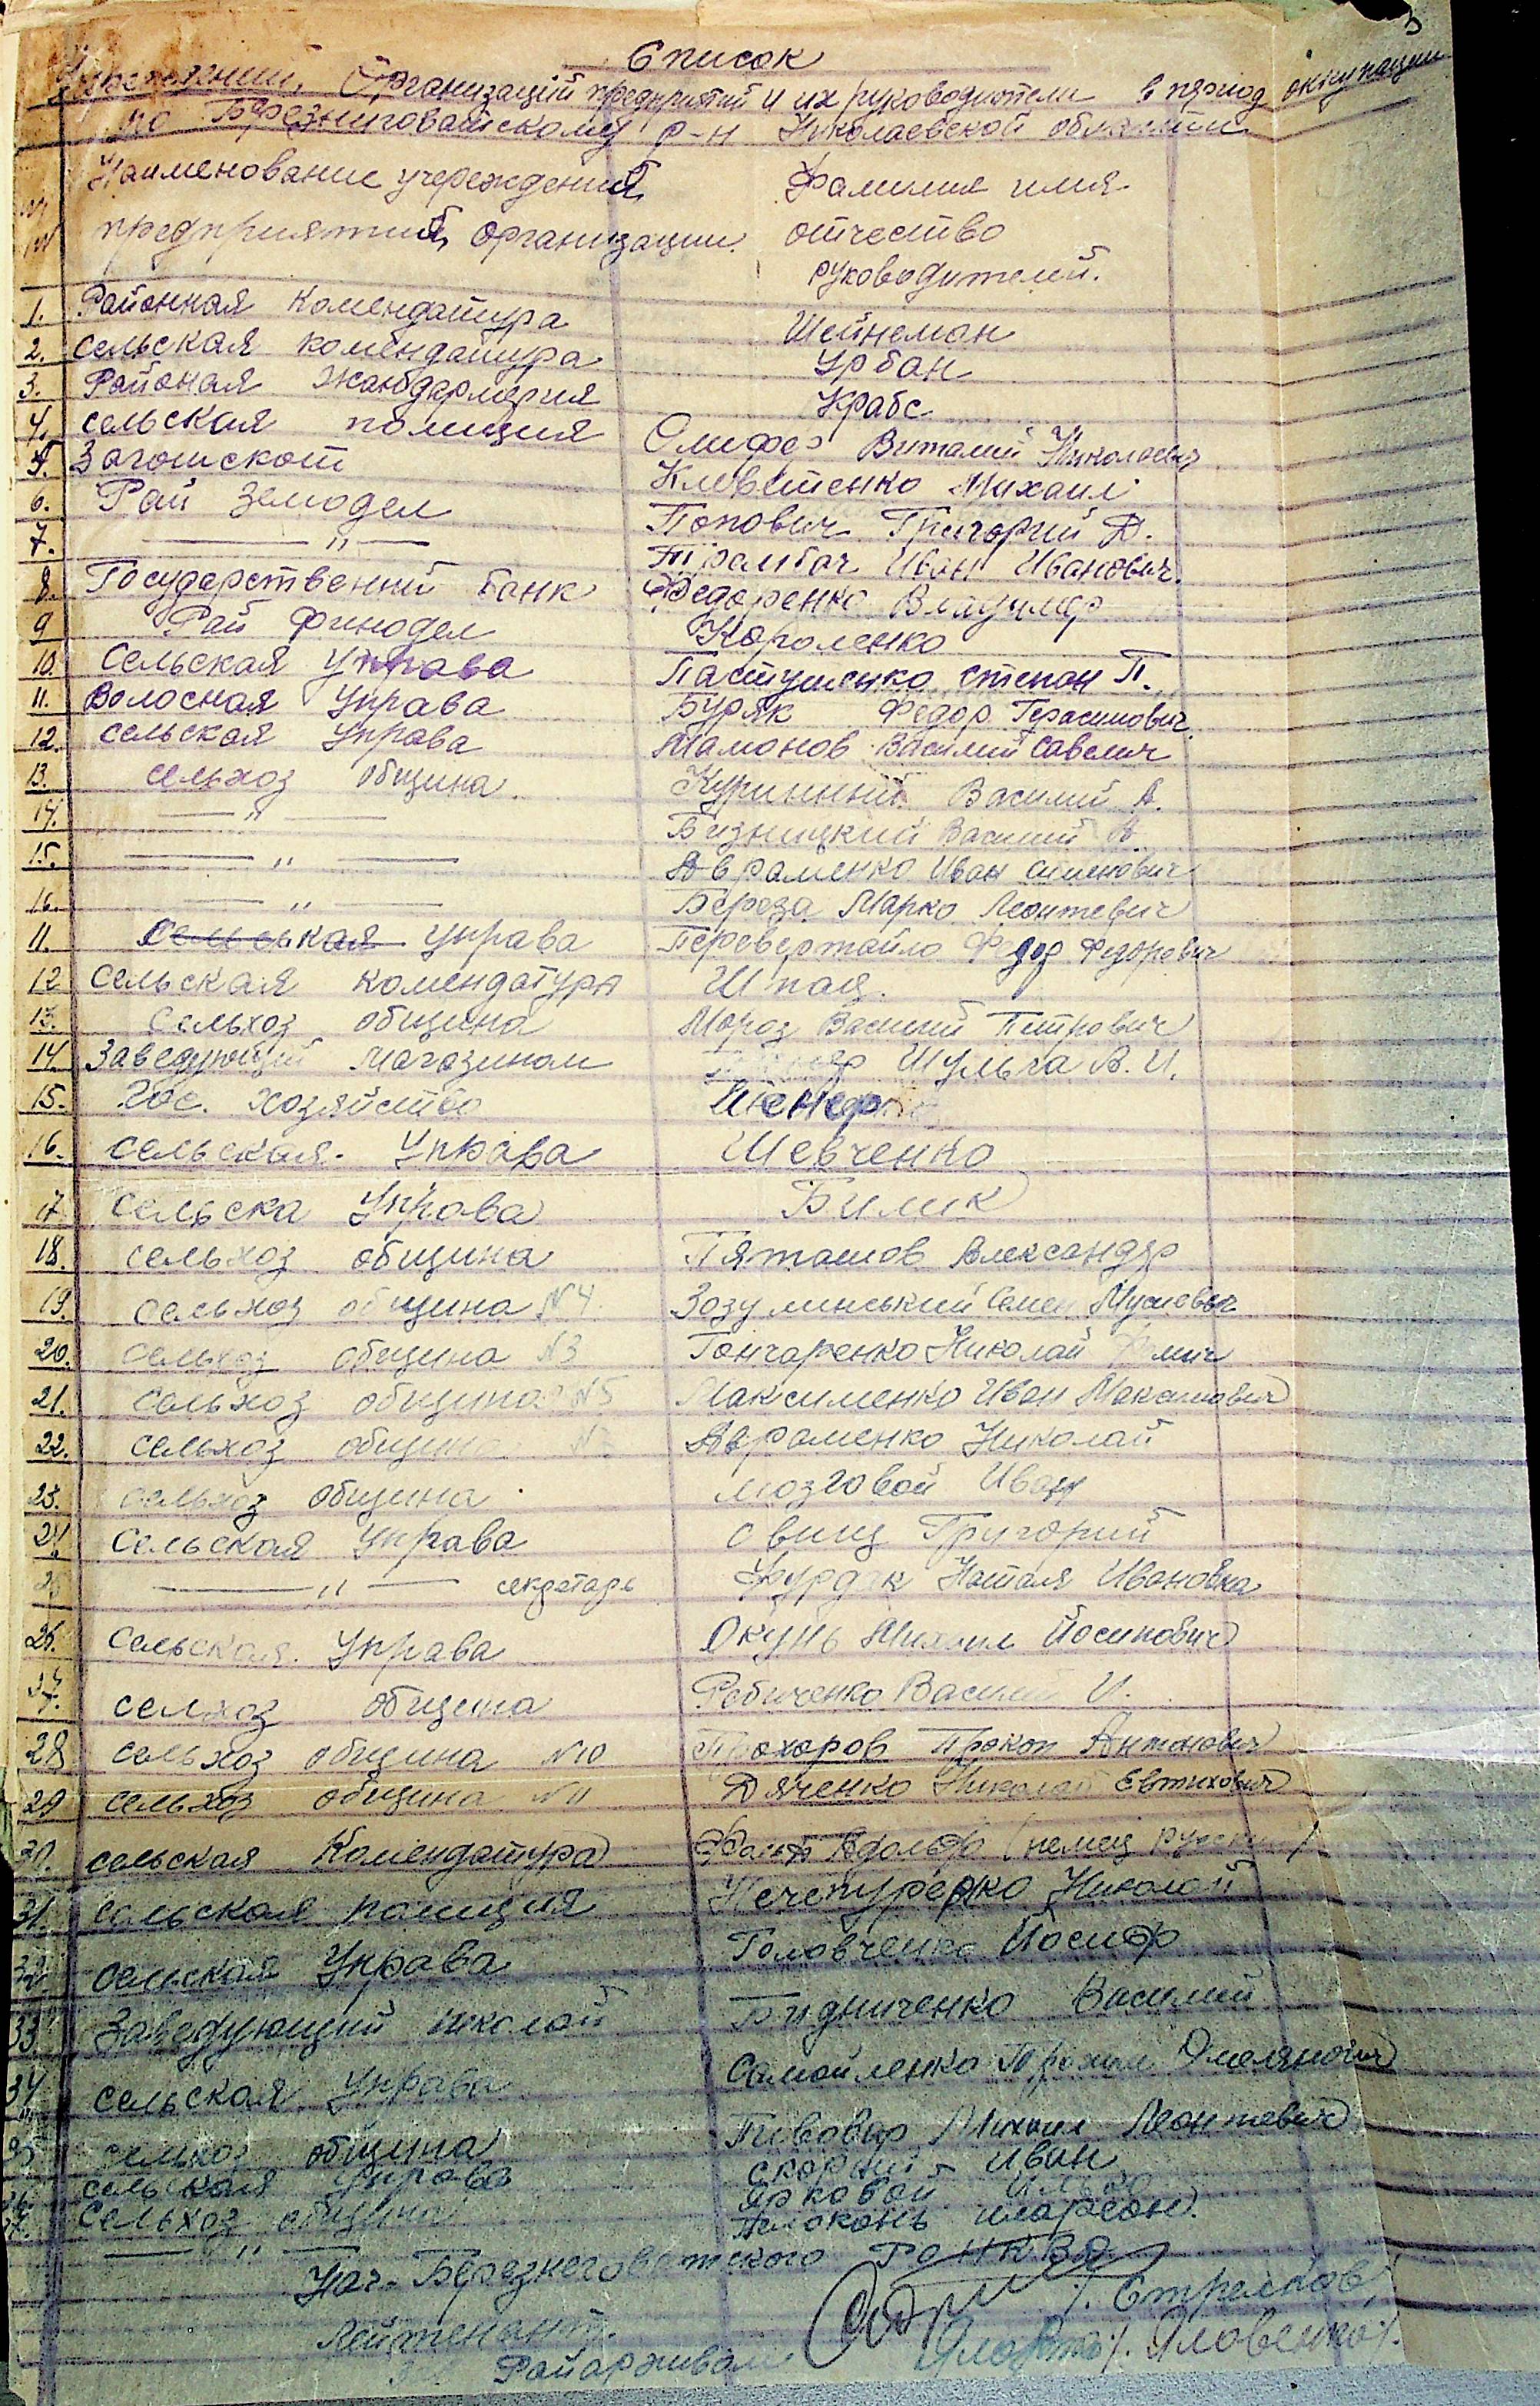 Список
Учреждений, Организаций предприятий и их руководители в период оккупации
по Березниговатскому р-н Николаевской области
Наименование учереждений, Фамилие имя
предприятий, организации. отчество
руководителей.
1. Районная Комендатура Шейнеман
2. Сельская комендатура Урбан
3. Районая Жандармерия Крабс
4. Сельская полиция Олифер Виталий Николаевич
5. Заготскот Клевитенко Михаил
6. Рай Земодел Попович Григорий Д.
7. — " — Иван Иванович.
8. Государственний банк Федоренко Владимер
9 Рай Финодел Короленко
10. Сельская Управа Пастушенко Степан П.
11. Волосная Управа Буряк Федор Герасимович
12. Сельская Управа Мамонов Василий Савелич
13. Сельхоз община. Куринний Василий А.
14. — " — Бизницкий Василий
15. — " — Авраменко Иван Сименович
16. — " — Береза Марко Леонтевич
11. Сельская управа Перевертайло Федор Федорович
12 Сельская комендатура Шпая.
13. Сельхоз община Мороз Василий Питрович
14. Заведующий магазином Шульга В. И.
15. Гос. хозяйство
16. Сельская. Управа Шевченко
17 Сельска Управа Билик
18. сельхоз община Пяташов Александр
19. Сельхоз община №4. Зозулинський Семен Мусиевич
20. Сельхоз община №3 Гончаренко Николай
21. Сельхоз община №5 Максименко Иван Максимович
22. Сельхоз община Авраменко Николай
23. Сельхоз община мозговой Иван
24. Сельская Управа Свищ Григорий
25 — " — секретарь Фурдак Наталя Ивановна
26. Сельская. Управа Окунь Михаил Йосипович
27. Селхоз община Ребиченко Василий И.
28 Сельхоз община №10 Прохоров Прокоп Антонович
29 Сельхоз община №11 Дяченко Николай Евтихович
30. Сельская Комендатура Адольф (немец
31. Сельская полиция Нечепуренко Николай
32. Сельская Управа Головченко Йосиф
33. Заведующий школой Бидниченко Василий
34 Сельская Управа Самойленко Трохим Омелянович
35 Сельхоз община Пивовар Михаил Леонтевич
Сельская Управа Скорий Иван
Сельхоз община Ярковой
— " — Иларсон.
Нач. Березнеговатского РО НКВД
Лейтенант. /. Стрелков/
Райархивом /. Яловенко/.